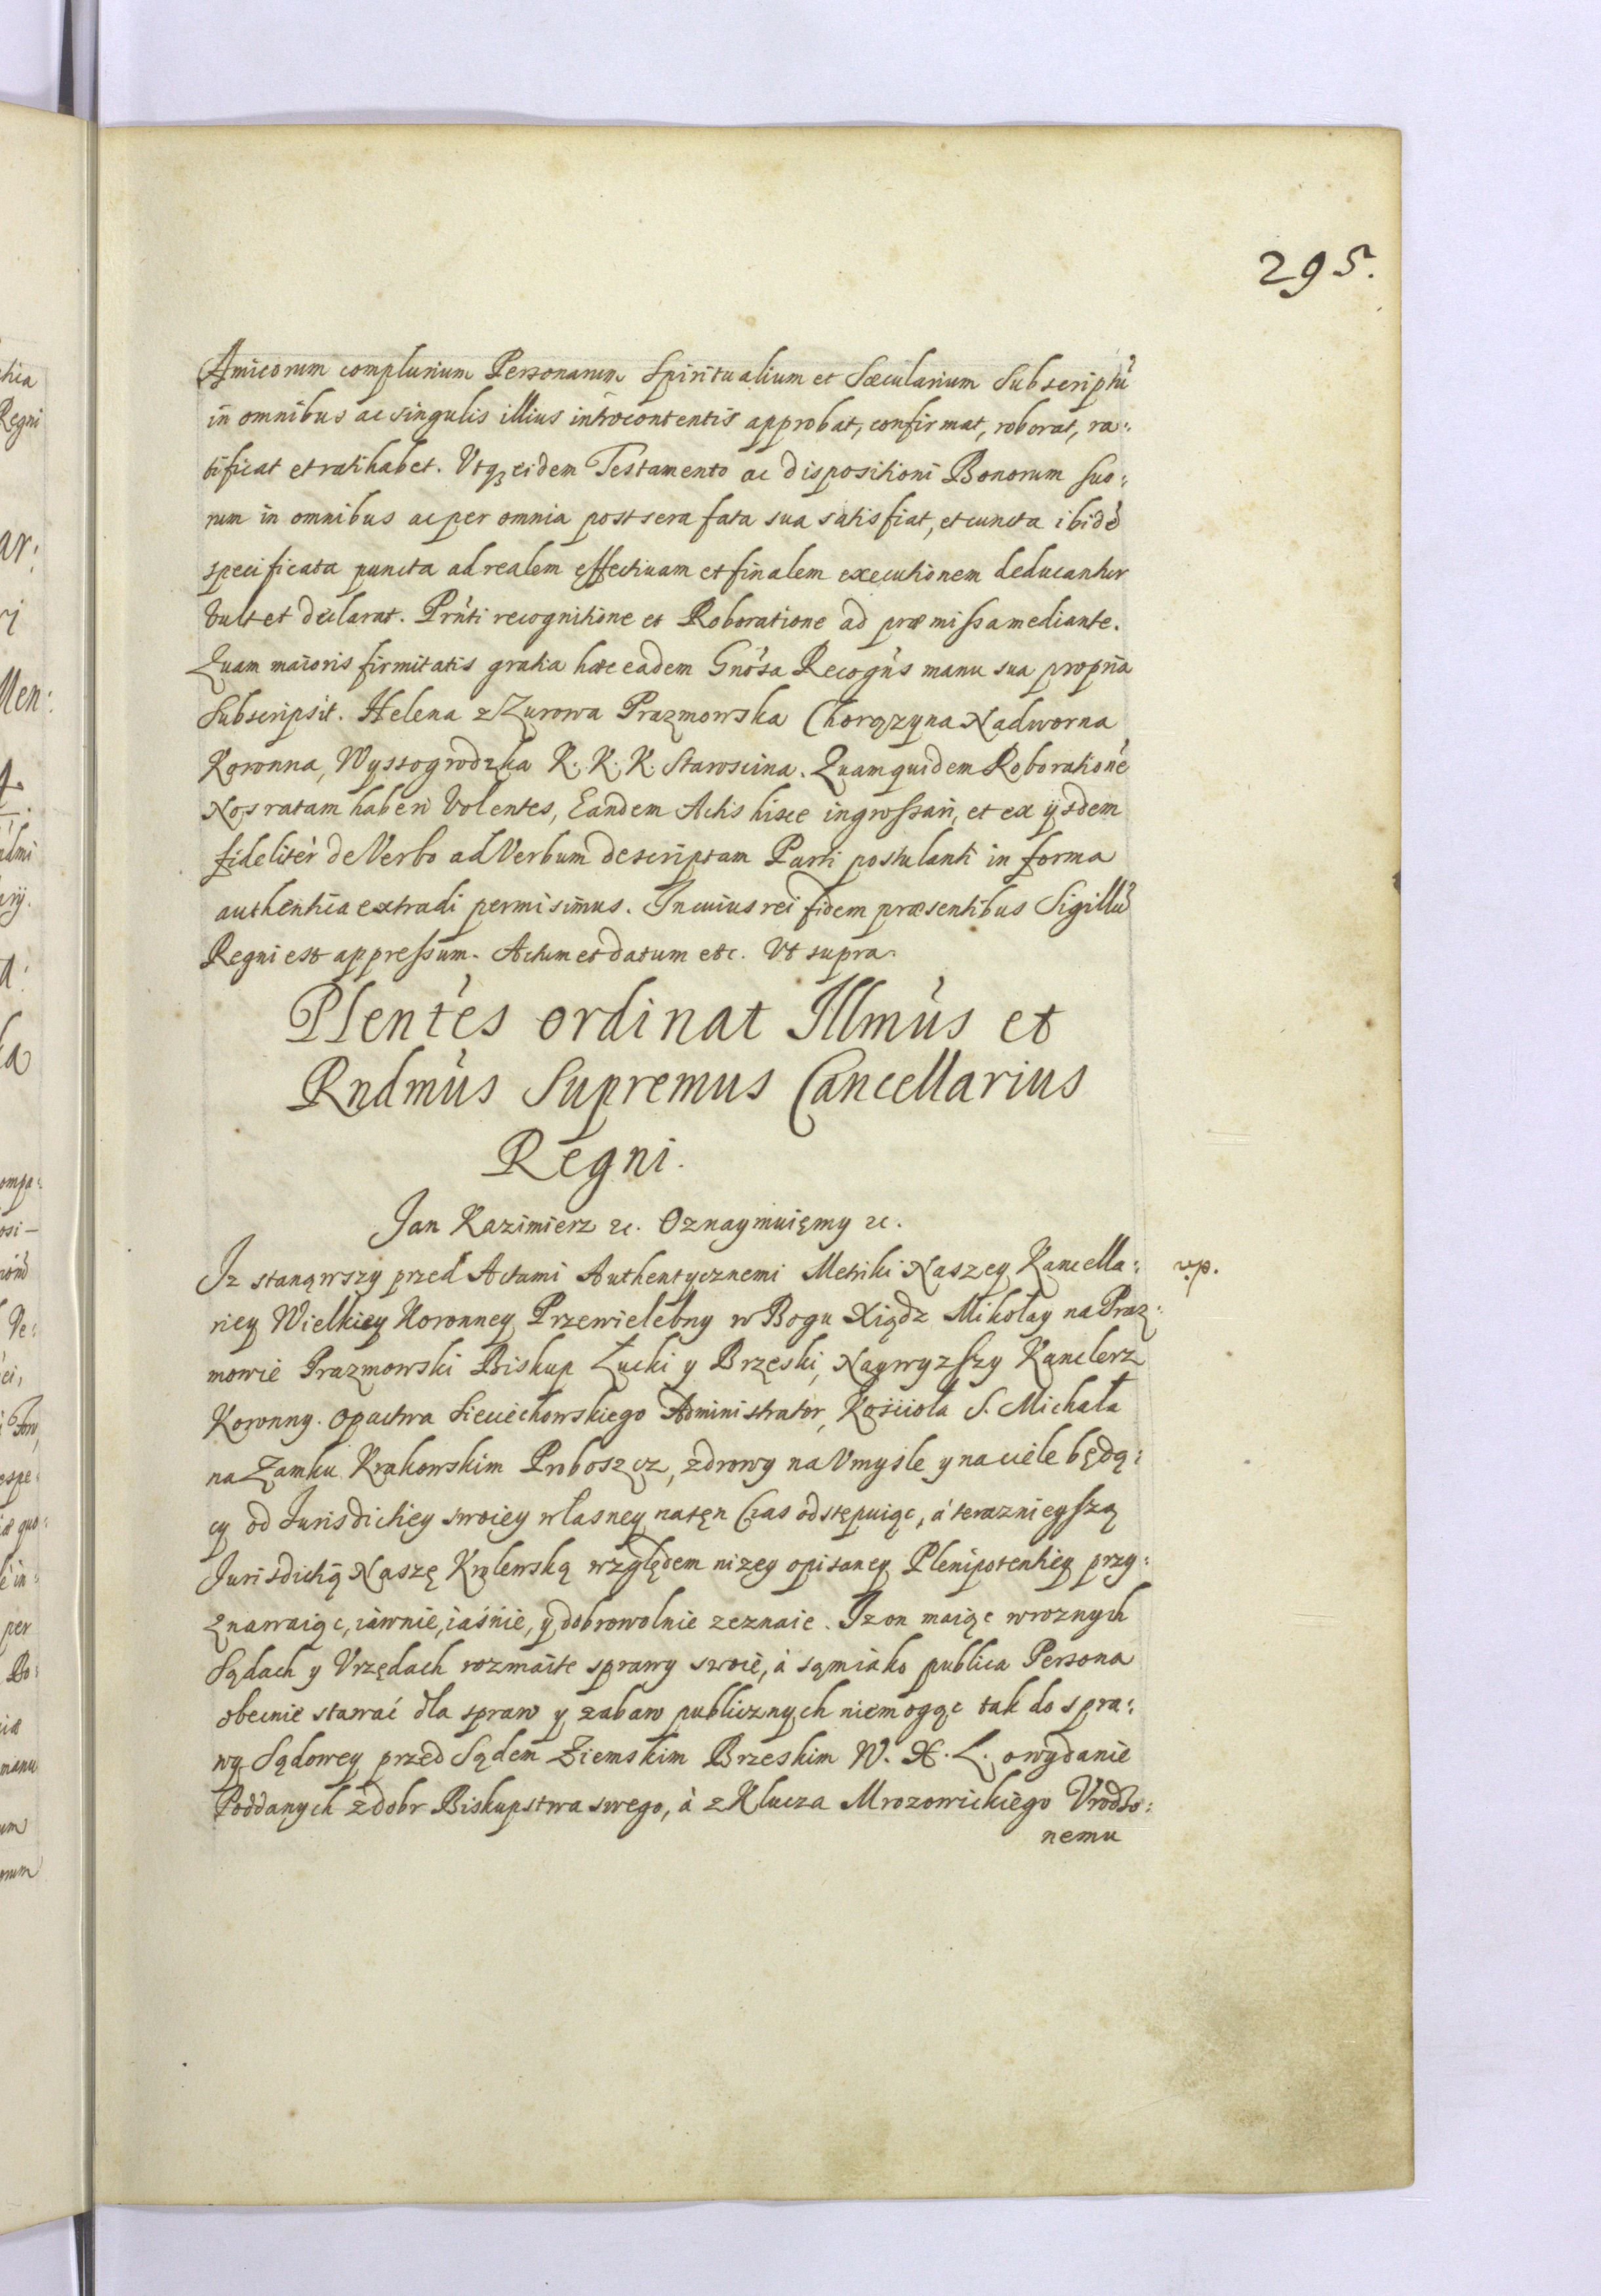 295.
Amicorum complurium Personarum Spiritualium et Sæcularium Subscriptũ
in omnibus ac singulis illius introcontentis approbat, confirmat, roborat, ra:
tificat et ratihabet. Utqꝫ eidem Testamento ac dispositioni Bonorum suo:
rum in omnibus ac per omnia post sera fata sua satisfiat, et cuncta ibidẽ
specificata puncta ad realem effectivam et finalem executionem deducantur
vult et declarat. Prñti recognitione et Roboratione ad præmissa mediante.
Quam maioris firmitatis gratia hæc eadem Gnõsa Recogñs manu sua propria
Subscripsit. Helena z Zurowa Prazmowska Chorązyna Nadworna
Koronna, Wyssogrodzka K. K. K. Staroscina. Quamquidem Roborationẽ
Nos ratam haberi volentes, Eandem Actis hisce ingrossari, et ex ijsdem
fideliter de Verbo ad Verbum descriptam Parti postulanti in forma
authentica extradi permisimus. In cuius rei fidem præsentibus Sigillũ
Regni est appressum. Actum et datum etc. Ut supra.
Plentẽs ordinat Illmũs et
Rndmũs Supremus Cancellarius
Regni.
Jan Kazimierz ꝛc. Oznaymuięmy ꝛc.
Iz stanąwszy przed Actami Authentycznemi Metriki Naszey Kancella:
v.p.
riey Wielkiey Koronney Przewielebny w Bogu Xiądz Mikołay na Praz:
mowie Prazmowski Biskup Łucki y Brzeski, Naywyzszy Kanclerz
Koronny. Opactwa Sieciechowskiego Administrator, Kościoła S. Michała
na Zamku Krakowskim Proboszcz, zdrowy na Vmyśle y na ciele będą:
cy od Jurisdictiey swoiey własney natęn Czas odstępuiąc, á teraznieyszą
Jurisdictią Naszę Krolewską względem nizey opisaney Plenipotentiey przy:
znawaiąc, iáwnie, iaśnie, y dobrowolnie zeznaie. Iz on maiąc w roznych
Sądach y Vrzędach rozmaite sprawy swoie, á sąm iako publica Persona
obecnie stawać dla spraw y zabaw publicznych niemogąc tak do spra:
wy Sądowey przed Sądem Ziemskim Brzeskim W. X. L. o wydanie
Poddanych z dobr Biskupstwa swego, á z Klucza Mrozowickiego Vrodzo:
nemu